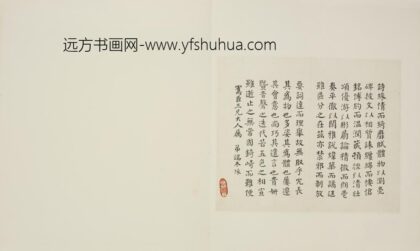 远方书画网-www.yfshuhua.com
詩緣情而綺靡賦體物以瀏亮
碑披文以相質誄纏綿而悽愴
銘博約而溫潤箴頓挫以清壯
頌優游以彬蔚論精微而朗暢
奏平徹以閑雅說煒曄而譎誑
雖區分之在茲亦禁邪而制放
要詞達而理舉故無取乎冗長
其為物也多姿其為體也屢遷
其會意也尚巧其遣言也貴妍
暨音聲之迭代若五色之相宣
雖逝止之無常固崎錡而難便
三兄大人屬 弟